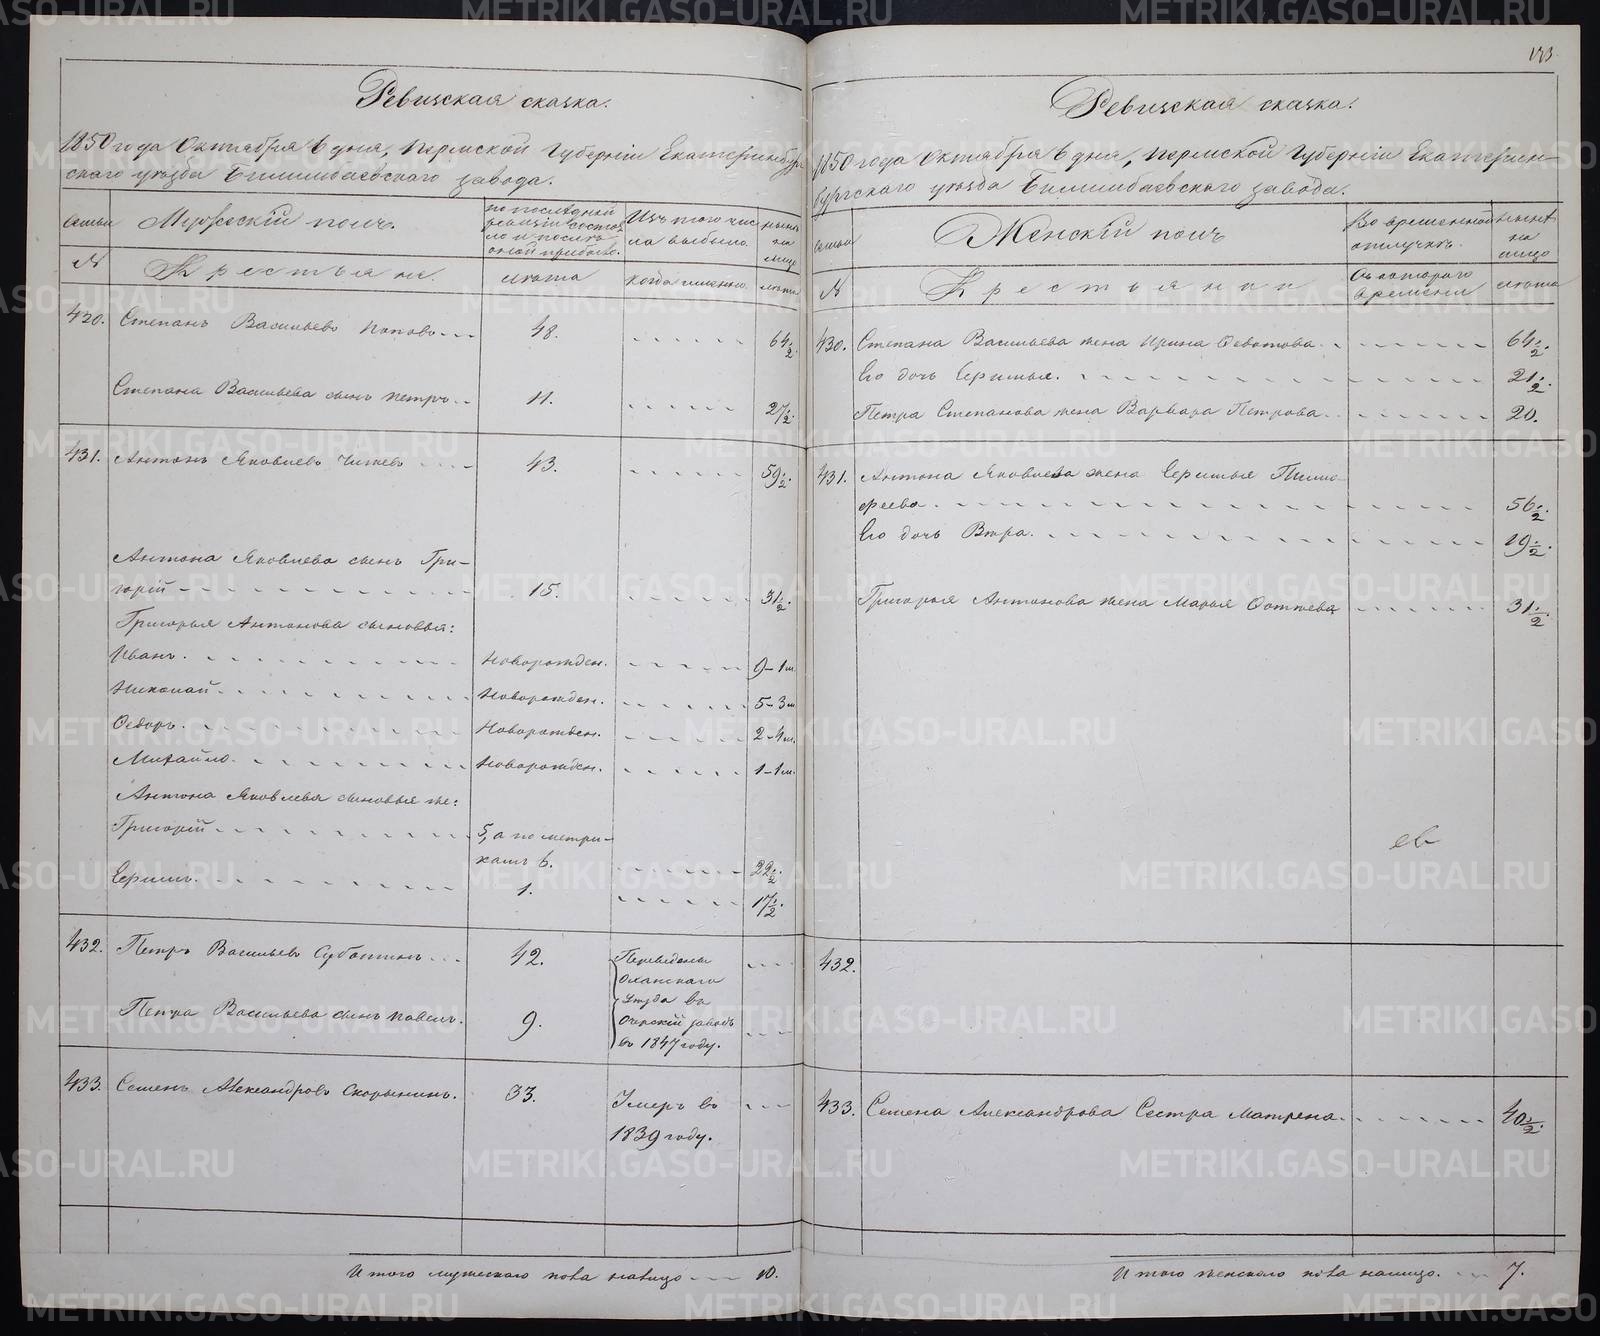 173
Ревижская сказка.
1850 года Октября 6 дня, Пермской Губерніи Екатеринбур
скаго уѣзда Билимбаевскаго завода.
семьи Мужескій полъ. по последней ревизіи состоя ло и послѣ оной прибыло. Изъ того чис ла выбыло. нынѣ на лицо
№ Крестьяне. лѣта когда именно. лѣта
420. Степанъ Васильевъ Поповъ 48. 64 1/2.
Степана Васильева сынъ Петръ 11. 27 1/2.
431. Антонъ Яковлевъ Чижевъ 43. 59 1/2.
Антона Яковлева сынъ Гри-
горій 15. 31 1/2.
Григорья Антонова сыновья:
Иванъ. Новорожден. 9-1 м.
Николай Новорожден. 5-3 м
Ѳедоръ. Новорожден. 2-4 м.
Михайло. Новорожден. 1-1 м.
Антона Яковлева сыновья же:
Григорій 5, а по метри-
камъ 6. 22 1/2.
1. 17 1/2.
432. Петръ Васильевъ Суботинъ 42. Переведены
Оханскаго
Уѣзда въ
Петра Васильева сынъ Павелъ. 9. Очерскій заводъ
въ 1847 году.
433. Семенъ Александровъ Скорынинъ. 33. Умеръ въ
1839 году.
Итого мужескаго пола налицо 10.
Ревижская сказка.
1850 года Октября 6 дня, Пермской Губерніи Екатерин-
бургскаго уѣзда Билимбаевскаго завода.
семьи Женскій полъ Во временной отлучкѣ. нынѣ на лицо
№ Крестьянки Съ котораго времени лѣта
430. Степана Васильева жена Ирина Ѳедотова 64 1/2.
Его дочь 21 1/2.
Петра Степанова жена Варвара Петрова 20.
431. Антона Яковлева жена Тимо
феева 56 1/2.
Его дочь Вѣра. 19 1/2.
Григорья Антонова жена Марья 31 1/2.
432.
433. Семена Александрова Сестра Матрена. 40 1/2.
Итого женскаго пола налицо. 7.
METRIKI.GASO-URAL.RU